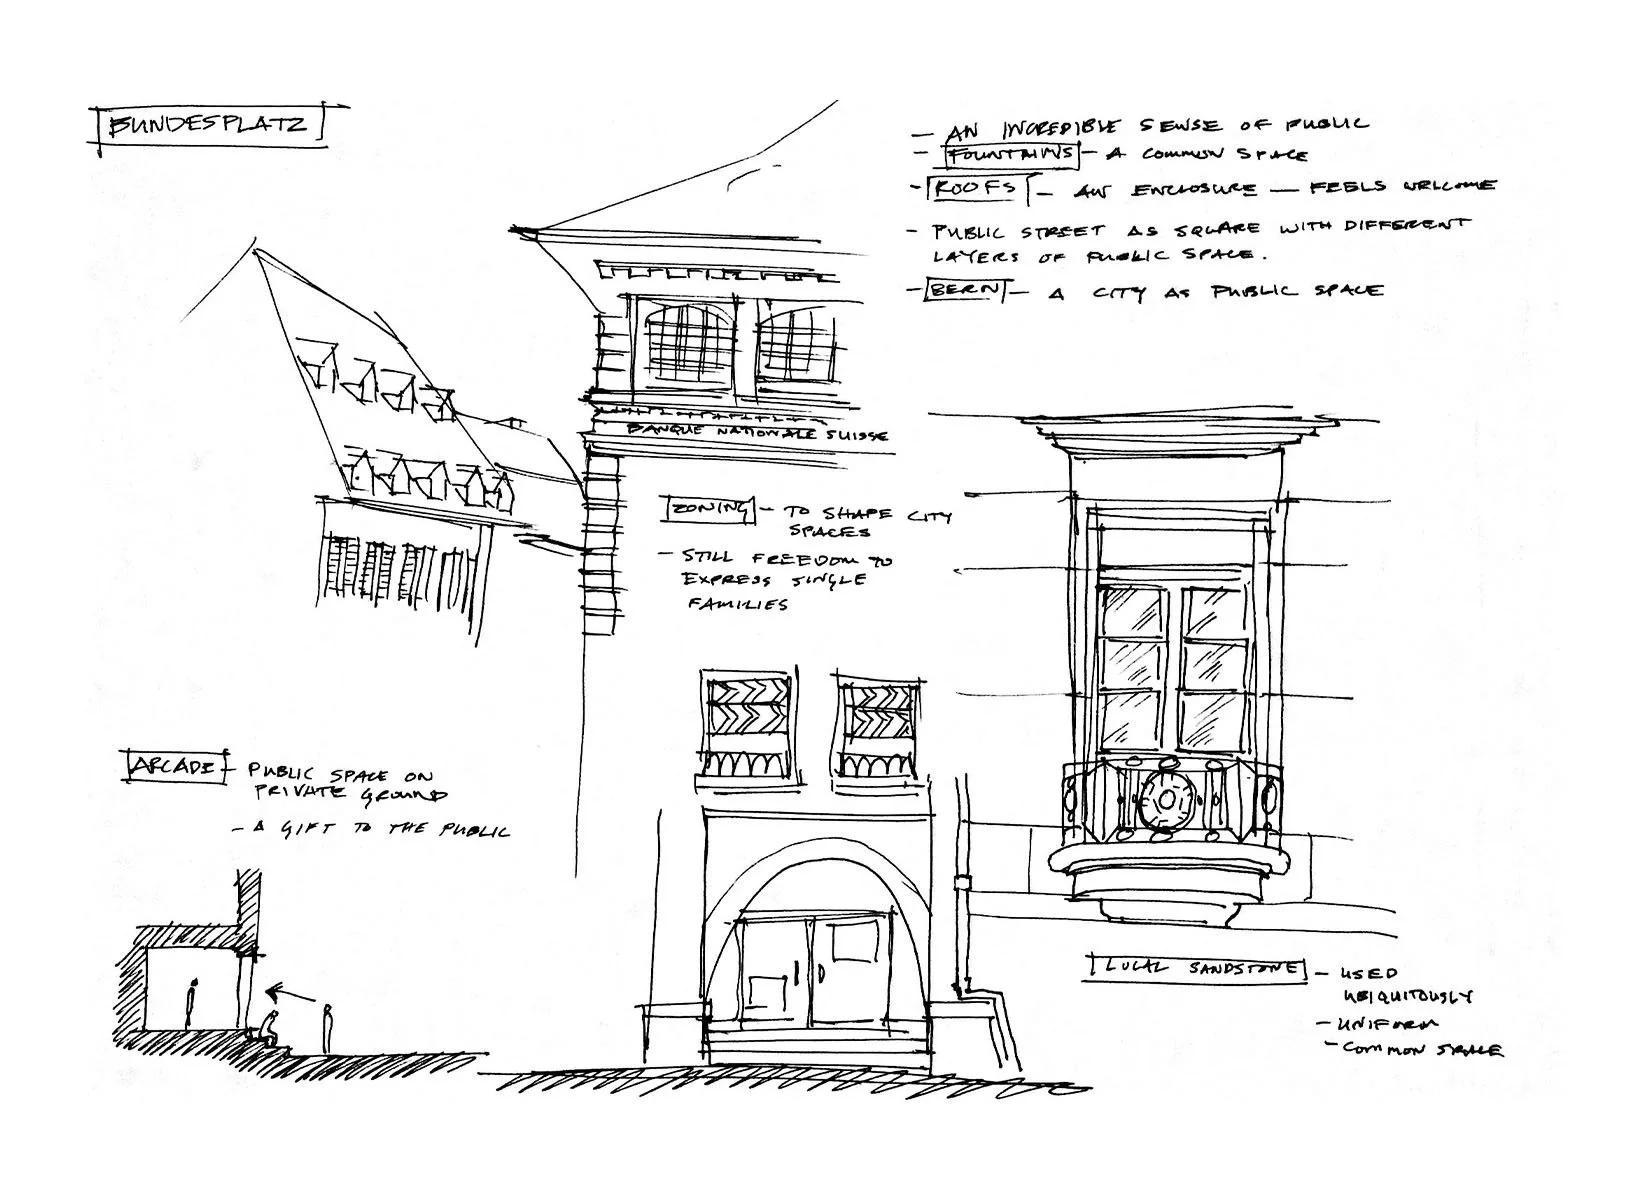 BUNDESPLATZ
- AN INCREDIBLE SENSE OF PUBLIC
- FOUNTAINS - A COMMON SPACE
- ROOFS - AN ENCLOSURE - FEELS WELCOME
- PUBLIC STREET AS SQUARE WITH DIFFERENT
LAYERS OF PUBLIC SPACE.
- BERN - A CITY AS PUBLIC SPACE
BANQUE NATIONALE SUISSE
ZONING - TO SHAPE CITY
SPACES
- STILL FREEDOM TO
EXPRESS SINGLE
FAMILIES
ARCADE - PUBLIC SPACE ON
PRIVATE GROUND
- A GIFT TO THE PUBLIC
LOCAL SANDSTONE - USED
UBIQUITOUSLY
- UNIFORM
- COMMON SPACE